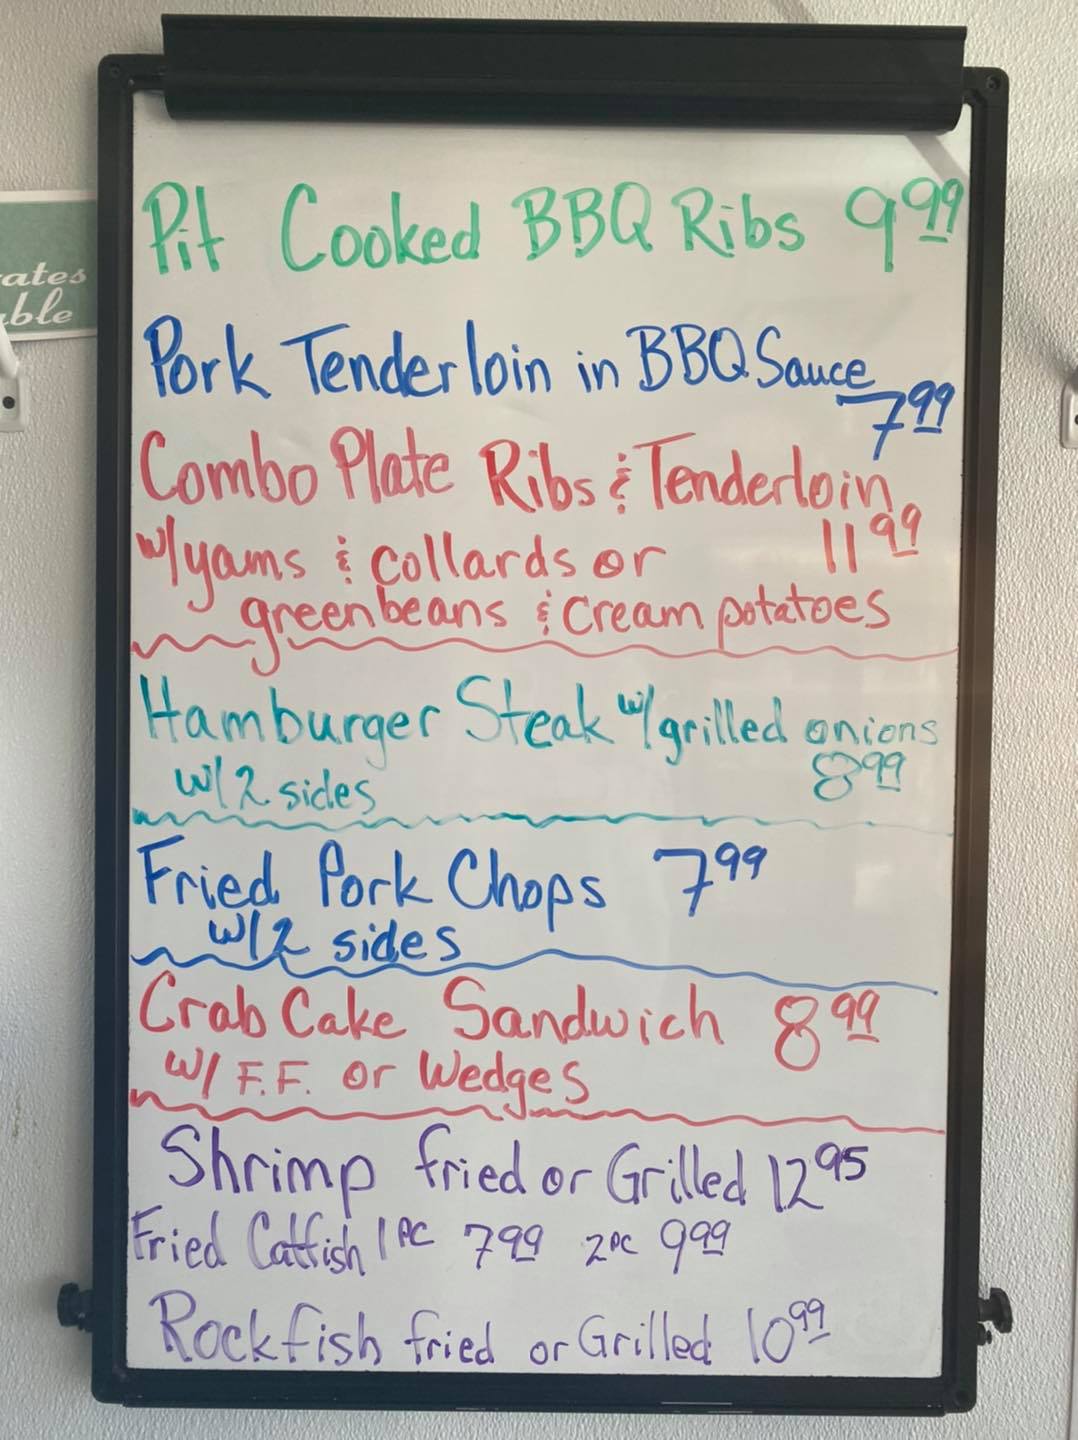 Pit Cooked BBQ Ribs 9.99
Pork Tenderloin in BBQ Sauce
7.99
Combo Plate Ribs & Tenderloin
11.99
w/yams & collards or
greenbeans & cream potatoes
Hamburger Steak w/grilled onions
w/2 sides 8.99
Fried Pork Chops 7.99
w/2 sides
Crab Cake Sandwich 8.99
w/ F.F. or Wedges
Shrimp fried or Grilled 12.95
Fried Catfish 1 PC 7.99 2 PC 9.99
Rockfish fried or Grilled 10.99
ates
able